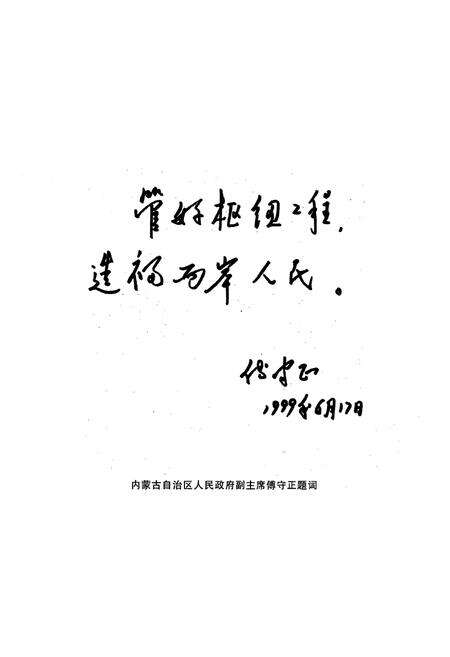 管好枢纽工程，
造福两岸人民。
傅守正
1999年6月17日
内蒙古自治区人民政府副主席傅守正题词